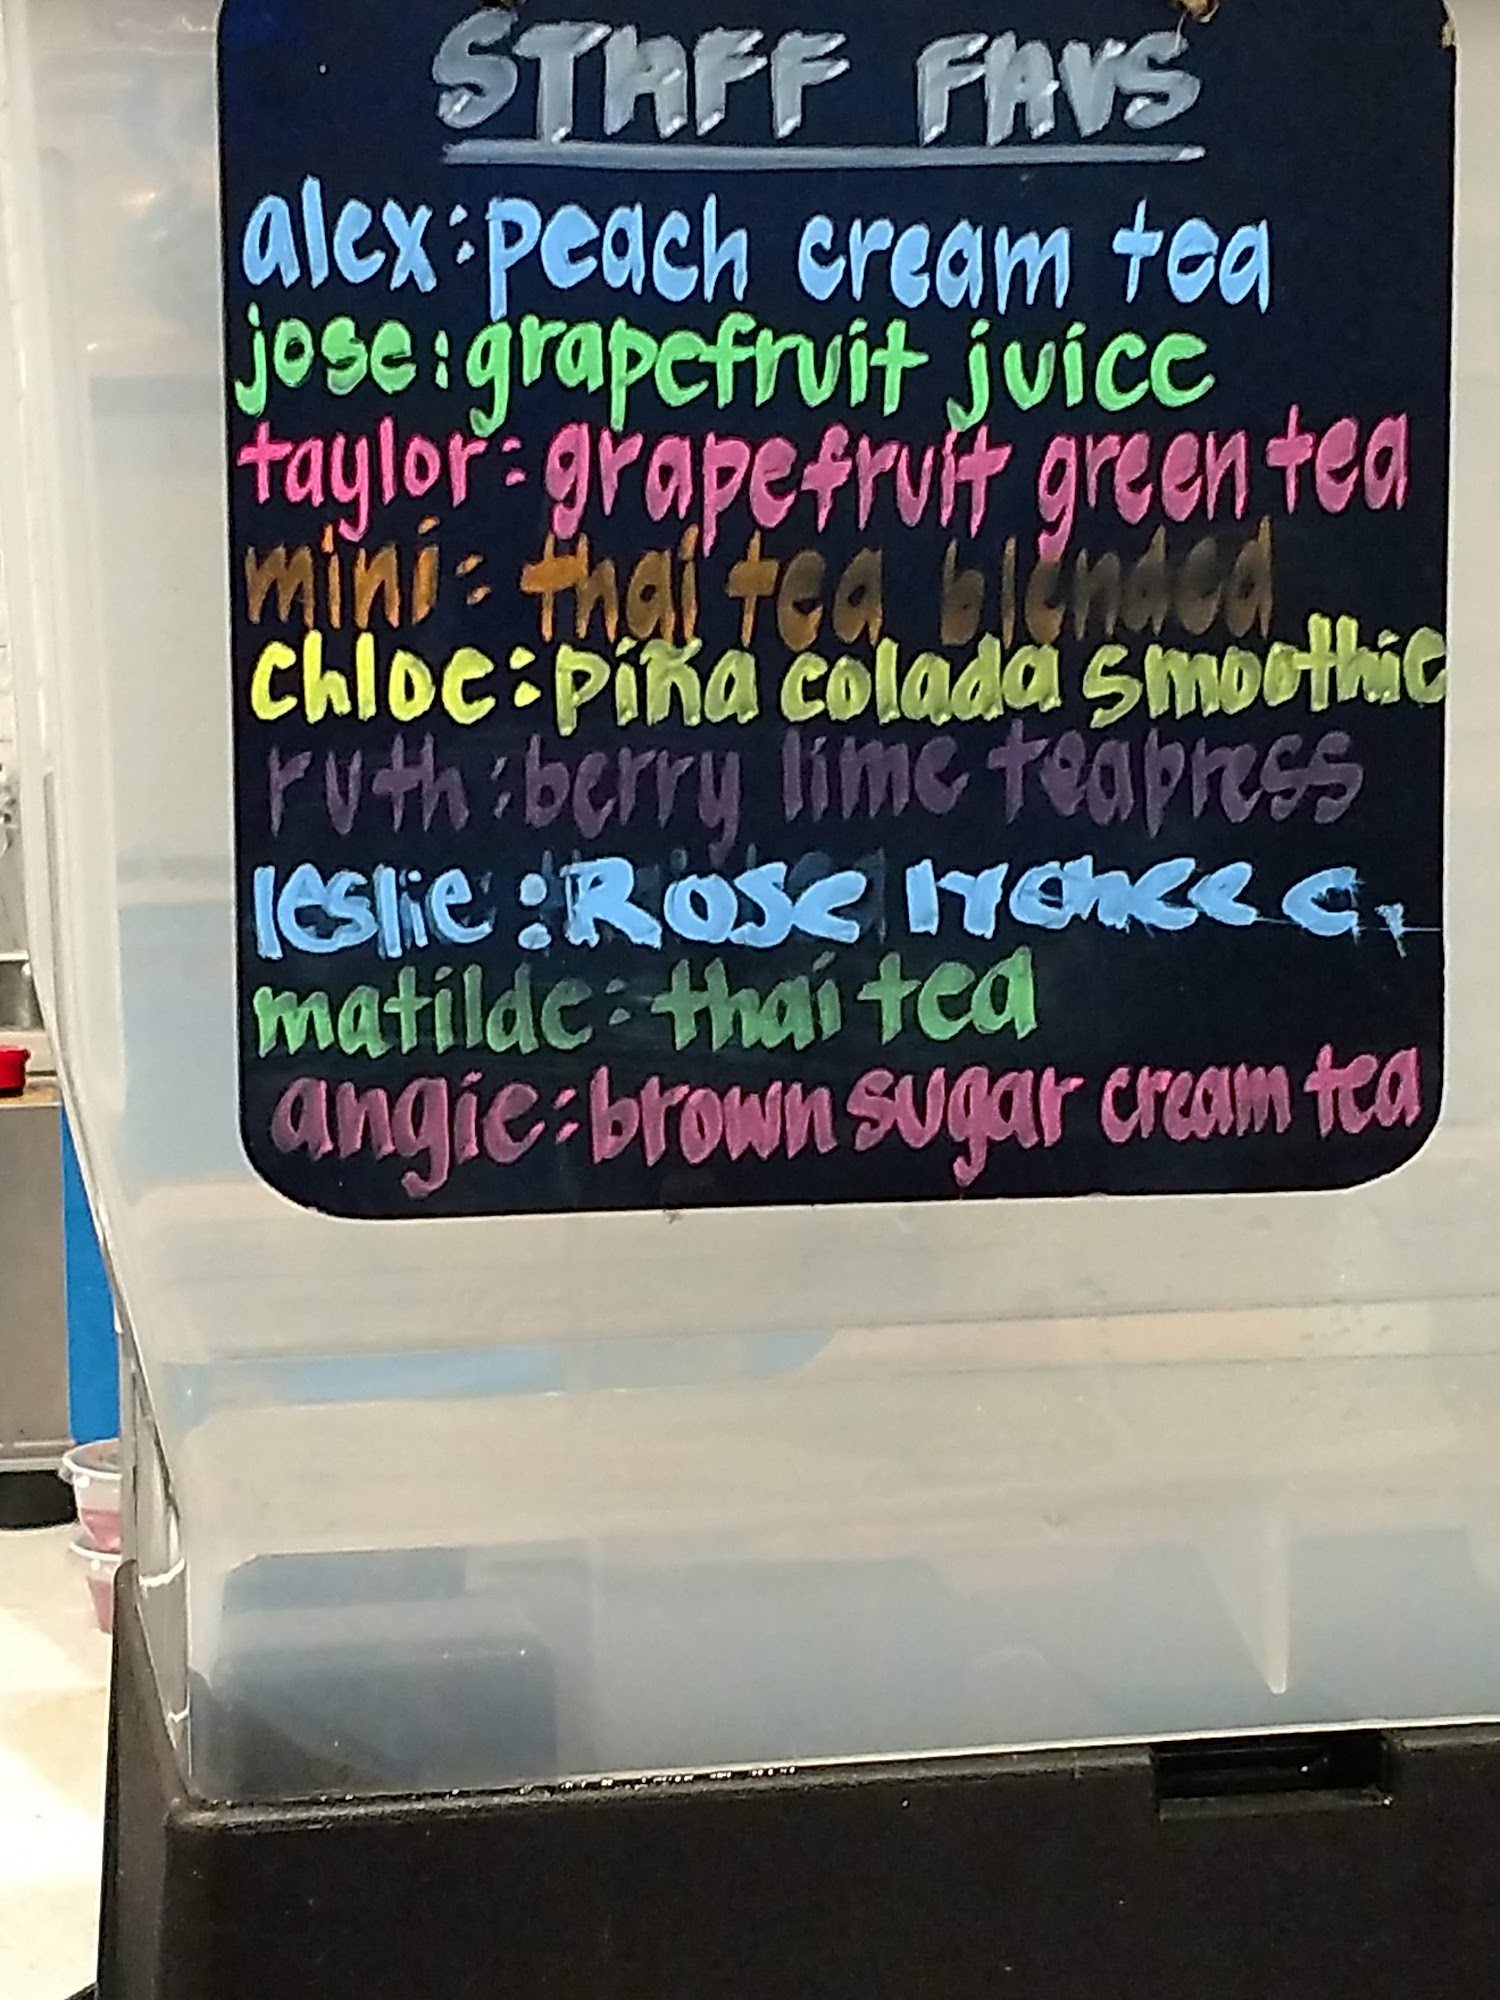 STAFF FAVS
alex: peach cream tea
jose: grapefruit juice
taylor: grapefruit green tea
mini: thai tea blended
chloe: piña colada smoothie
ruth: berry lime teapress
leslie: Rose c.
matilde: thai tea
angie: brown sugar cream tea